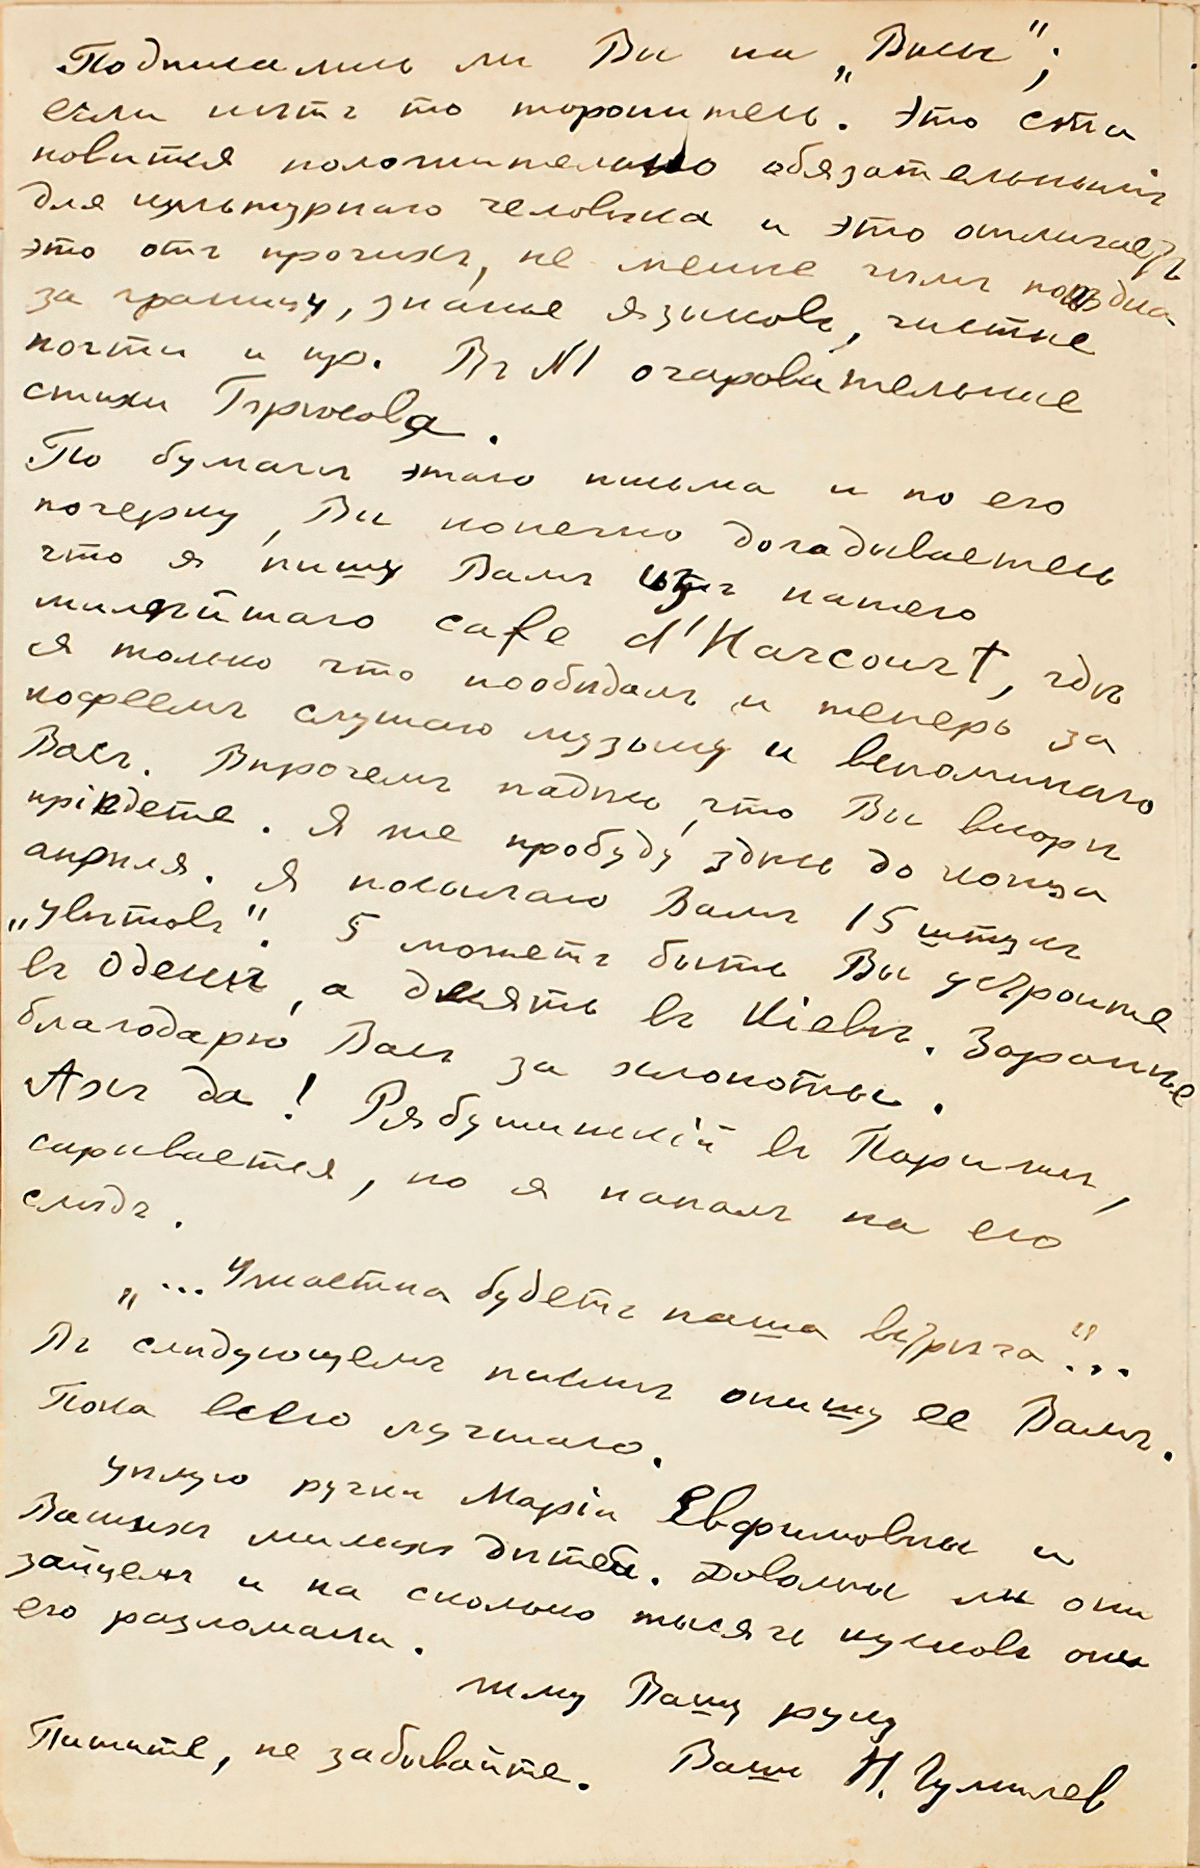 Подписались ли Вы на „Весы“;
если нѣтъ то торопитесь. Это ста
новится положительно обязательнымъ
для культурнаго человѣка и это отличаетъ
это отъ прочихъ, не менѣе чѣмъ поѣздка
за границу, знанье языковъ, чистые
ногти и пр. Въ N1 очаровательные
стихи Брюсова.
По бумагѣ этаго письма и по его
почерку, Вы конечно догадываетесь
что я пишу Вамъ изъ нашего
милѣйшаго cafe d'Harcourt, гдѣ
я только что пообѣдалъ и теперь за
кофеемъ слушаю музыку и вспоминаю
Васъ. Впрочемъ надѣюсь, что Вы вскорѣ
пріѣдете. Я же пробуду здѣсь до конца
апрѣля. Я посылаю Вамъ 15 штукъ
„Цвѣтовъ“. 5 можетъ быть Вы устроите
въ Одессѣ, а десять въ Кіевѣ. Заранѣе
благодарю Васъ за хлопоты.
Ахъ да! Рябушинскій въ Парижѣ,
скрывается, но я напалъ на его
слѣдъ.
„...Ужастна будетъ наша встрѣча“...
Въ слѣдующемъ письмѣ опишу ее Вамъ.
Пока всего лучшаго.
Цѣлую ручки Маріи Евфимовны и
Вашихъ милыхъ дѣтей. Довольны ли они
зайцемъ и на сколько тысячъ кусковъ они
его разломали.
жму Вашу руку
Пишите, не забывайте. Вашъ Н. Гумилев